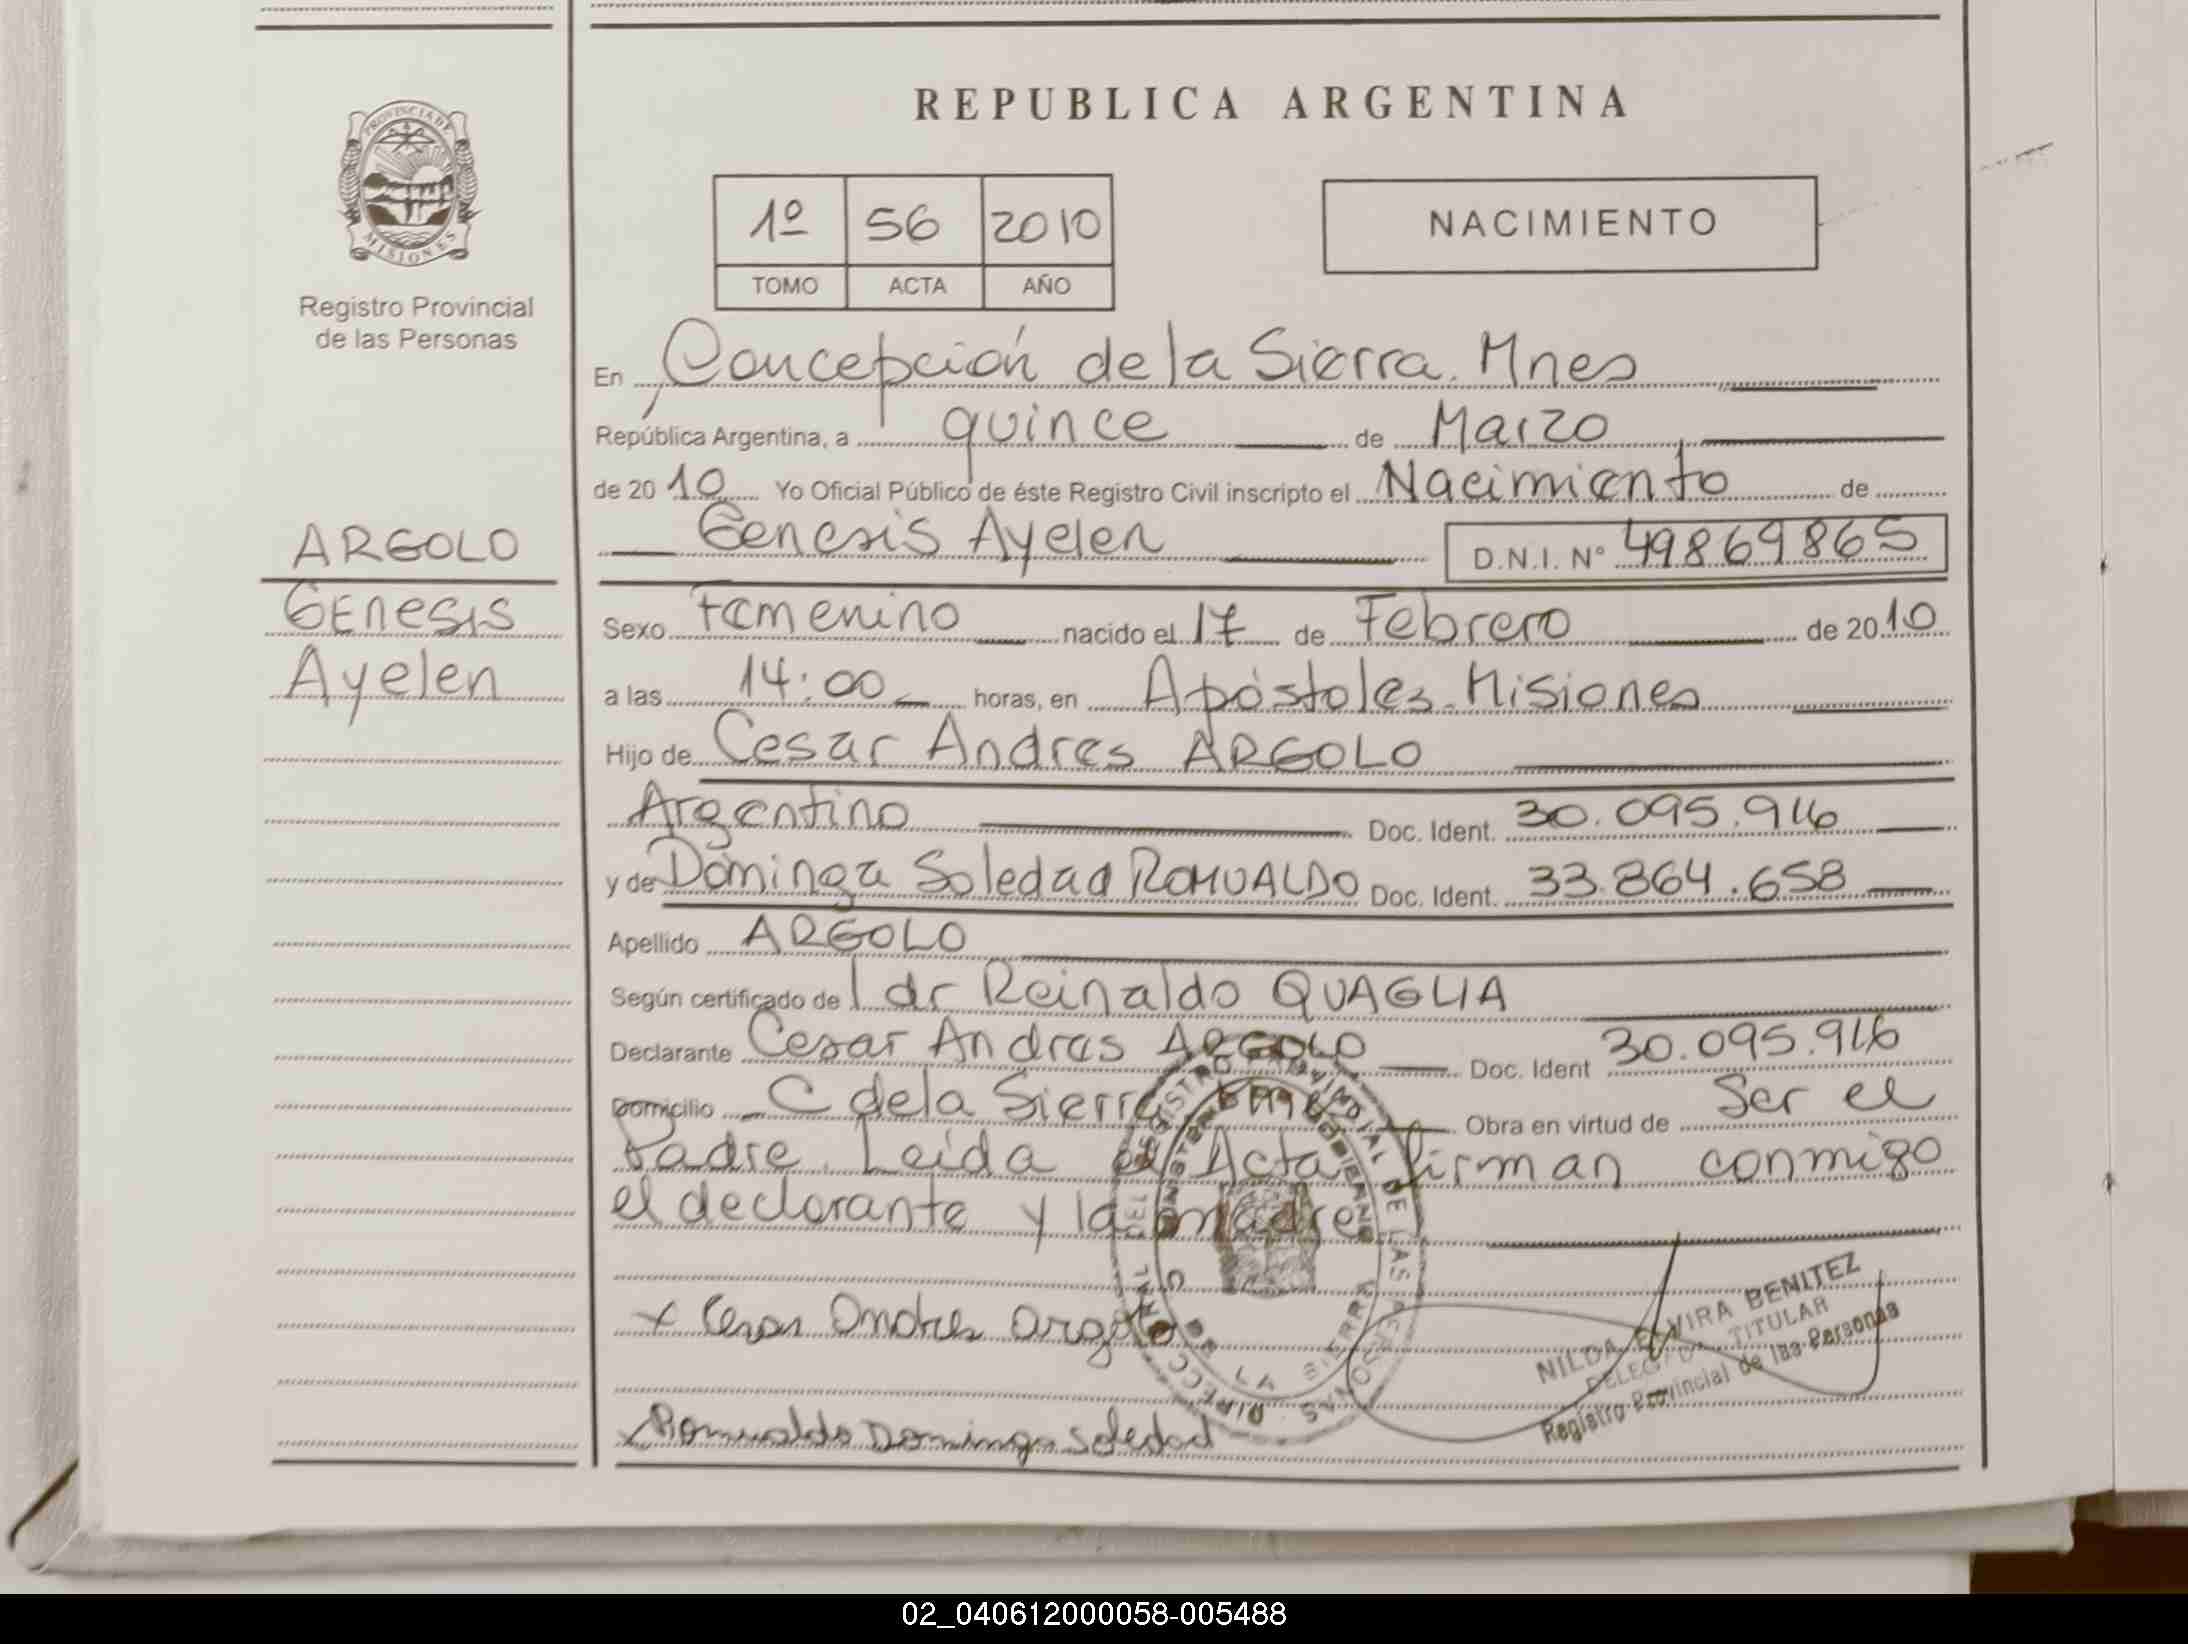 REPUBLICA ARGENTINA
PROVINCIA DE
MISIONES
Registro Provincial
de las Personas
1º 56 2010
TOMO ACTA AÑO
NACIMIENTO
ARGOLO
GENESIS
Ayelen
En Concepción de la Sierra. Mnes
República Argentina, a quince de Marzo
de 2010 Yo Oficial Público de éste Registro Civil inscripto el Nacimiento de
Genesis Ayelen D.N.I. Nº 49869865
Sexo Femenino nacido el 17 de Febrero de 2010
a las 14:00 horas, en Apóstoles. Misiones
Hijo de Cesar Andres ARGOLO
Argentino Doc. Ident. 30.095.916
y de Dominga Soledad ROMUALDO Doc. Ident. 33.864.658
Apellido ARGOLO
Según certificado de l dr Reinaldo QUAGLIA
Declarante Cesar Andres ARGOLO Doc. Ident 30.095.916
Domicilio C de la Sierra Mnes Obra en virtud de Ser el
Padre. Leida el Acta firman conmigo
el declarante y la madre
x Cesar Andres Argolo
x Romualdo Dominga Soledad
NILDA ELVIRA BENITEZ
DELEGADA TITULAR
Registro Provincial de las Personas
02_040612000058-005488